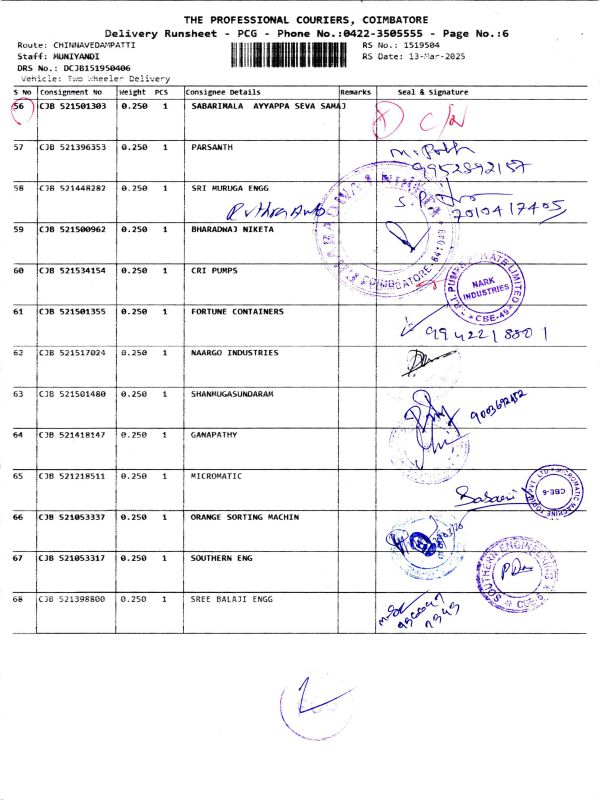 THE PROFESSIONAL COURIERS, COIMBATORE
Delivery Runsheet - PCG - Phone No.:0422-3505555 - Page No.:6
Route: CHINNAVEDAMPATTI RS No.: 1519504
Staff: MUNIYANDI RS Date: 13-Mar-2025
DRS No.: DCJB151950406
Vehicle: Two Wheeler Delivery
S No Consignment No Weight PCS Consignee Details Remarks Seal & Signature
56 CJB 521501303 0.250 1 SABARIMALA AYYAPPA SEVA SAMAJ
57 CJB 521396353 0.250 1 PARSANTH
9952892157
58 CJB 521448282 0.250 1 SRI MURUGA ENGG
7010417405
59 CJB 521500962 0.250 1 BHARADWAJ NIKETA
COIMBATORE-641049
60 CJB 521534154 0.250 1 CRI PUMPS
C.R.I. PUMPS PRIVATE LIMITED
NARK
INDUSTRIES
CBE-49
61 CJB 521501355 0.250 1 FORTUNE CONTAINERS
9942218801
62 CJB 521517024 0.250 1 NAARGO INDUSTRIES
63 CJB 521501480 0.250 1 SHANMUGASUNDARAM
9003692452
64 CJB 521418147 0.250 1 GANAPATHY
65 CJB 521218511 0.250 1 MICROMATIC
MICROMATIC MACHINE TOOLS PVT. LTD
CBE-6
66 CJB 521053337 0.250 1 ORANGE SORTING MACHIN
67 CJB 521053317 0.250 1 SOUTHERN ENG
SOUTHERN ENGINEERING
CBE-6
68 CJB 521398800 0.250 1 SREE BALAJI ENGG